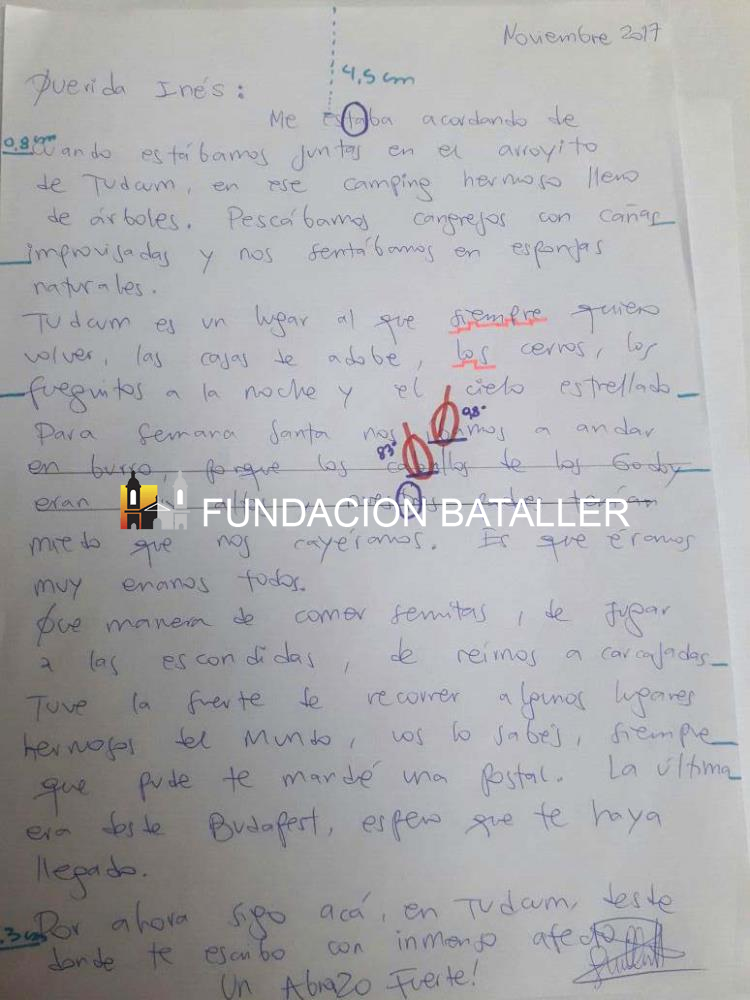 Noviembre 2017
4,5 cm
Querida Inés:
Me estaba acordando de
0,8cm
cuando estábamos juntas en el arroyito
de Tudcum, en ese camping hermoso lleno
de árboles. Pescábamos cangrejos con cañas
improvisadas y nos sentábamos en esponjas
naturales.
Tudcum es un lugar al que siempre quiero
volver, las casas de adobe, los cerros, los
fueguitos a la noche y el cielo estrellado
98°
Para Semana Santa nos íbamos a andar
83°
en burro, porque los caballos de los Godoy
eran
FUNDACION BATALLER
miedo que nos cayéramos. Es que éramos
muy enanos todos.
Que manera de comer semitas, de jugar
a las escondidas, de reirnos a carcajadas
Tuve la suerte de recorrer algunos lugares
hermosos del mundo, vos lo sabés, siempre
que pude te mandé una postal. La última
era desde Budapest, espero que te haya
llegado.
Por ahora sigo acá, en Tudcum, desde
3cm
donde te escribo con inmenso afecto
Un Abrazo Fuerte!